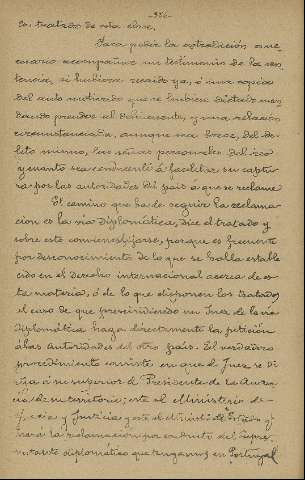 -356-
los tratados de esta clase.
Para pedir la extradición es ne-
cesario acompañar un testimonio de la sen-
tencia, si hubiera recaído ya, ó una copia
del auto motivado que se hubiera dictado man
dando prender al delincuente, y una relación
circunstanciada, aunque sea breve, del de-
lito mismo, las señas personales del reo
y cuanto sea conducente á facilitar su captu
ra por las autoridades del pais a que se reclame
El camino que ha de seguir la reclama-
cion es la via diplomática, dice el tratado y
sobre esto conviene fijarse, porque es frecuente
por desconocimiento de lo que se halla estable
cido en el derecho internacional acerca de es-
ta materia, ó de lo que disponen los tratados,
el caso de que prescindiendo un Juez de la via
diplomática haga directamente la petición
á las autoridades del otro pais. El verdadero
procedimiento consiste en que el Juez se di
rija á su superior el Presidente de la Audien
cia de su territorio; este al Ministerio de
Gracia y Justicia y este al Ministro de Estado y
hará la reclamacion por conducto del repre
sentante diplomático que tengamos en Portugal